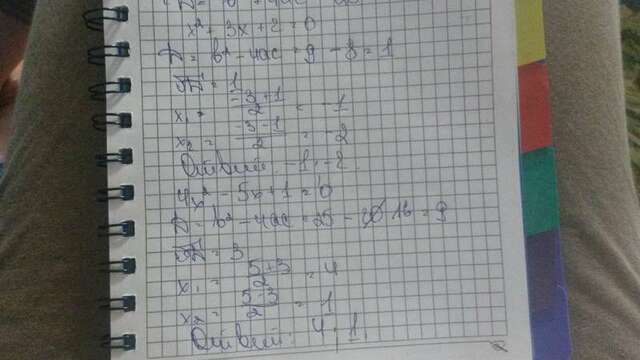 x² + 3x + 2 = 0
D = b² - 4ac = 9 - 8 = 1
√D = 1
x₁ = (-3+1)/2 = -1
x₂ = (-3-1)/2 = -2
Ответ: -1; -2.
4x² - 5x + 1 = 0
D = b² - 4ac = 25 - 16 = 9
√D = 3
x₁ = (5+3)/2 = 4
x₂ = (5-3)/2 = 1
Ответ: 4; 1.